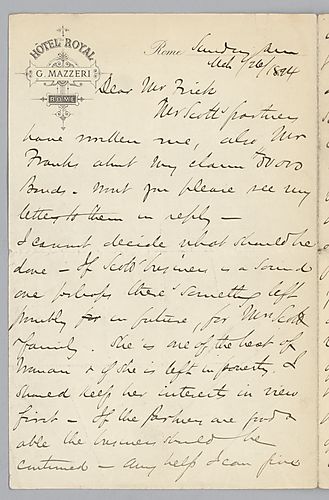 HOTEL ROYAL
G. MAZZERI
ROME
Rome, Sunday
Mch 26/1894
Dear Mr Frick
Mr Scotts partners
have written me, also Mr
Franks about my claim 50000
Bonds. Wont you please see my
letter to them in reply —
I cannot decide what should be
done — If Scotts business is a sound
one perhaps there's something left
possibly for in future, for Mrs Scott
& family. She is one of the best of
Woman & if she is left in poverty. I
should keep her interests in view
first — If the partners are good &
able the business should be
continued — Any help I can give